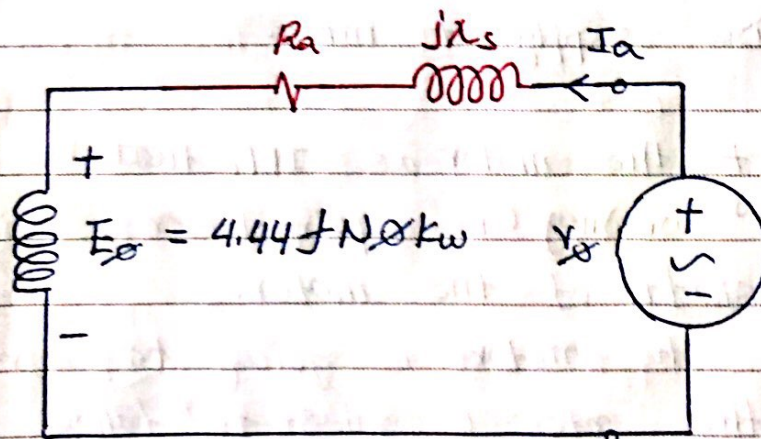 Ra jXs Ia
+
Eø = 4.44fNØKw Vø
+
~
-
-